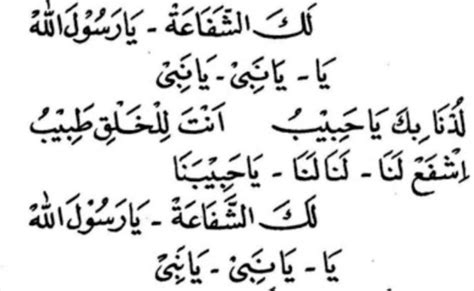 لَكَ الشَّفَاعَةْ - يَارَسُوْلَ اللهْ
يَا - يَانَبِيْ - يَانَبِيْ
لُذْنَا بِكَ يَاحَبِيْبُ اَنْتَ لِلْخَلْقِ طَبِيْبُ
اِشْفَعْ لَنَا - لَنَا لَنَا - يَاحَبِيْبَنَا
لَكَ الشَّفَاعَةْ - يَارَسُوْلَ اللهْ
يَا - يَانَبِيْ - يَانَبِيْ